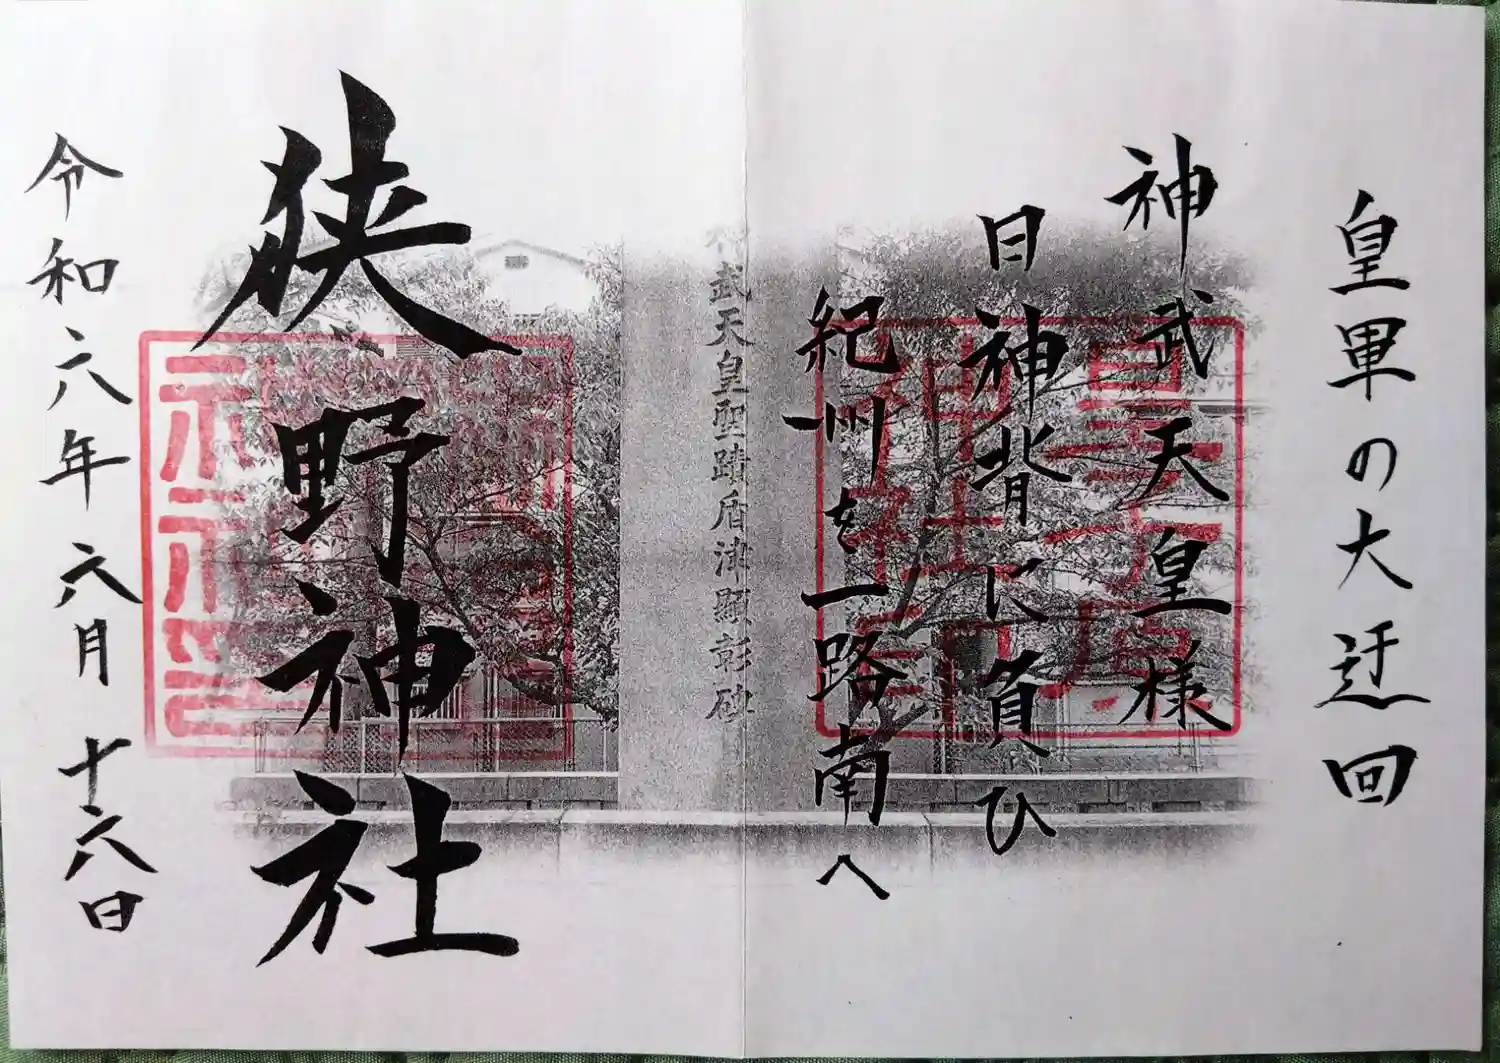 皇軍の大迂回
神武天皇様
日神背に負ひ
紀州を一路南へ
神武天皇聖蹟盾津顕彰碑
狭野神社
令和六年六月十六日